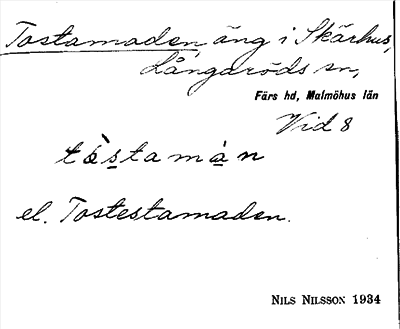 Tostamaden, äng i Skärhus,
Långaröds sn,
Färs hd, Malmöhus län
Vid 8
tòs̲tamà̲n
el. Tostestamaden.
NILS NILSSON 1934